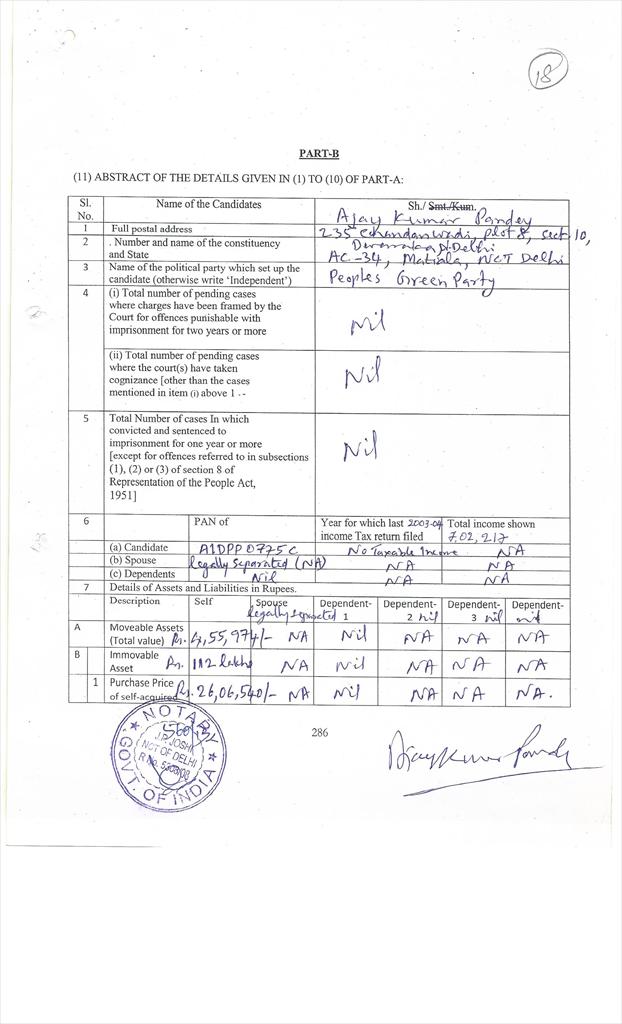 18
PART-B
(11) ABSTRACT OF THE DETAILS GIVEN IN (1) TO (10) OF PART-A:
Sl. No. Name of the Candidates Sh./ Smt./Kum.
Ajay Kumar Pandey
1 Full postal address 235 Chandanwadi, plot 8, sect 10,
Dwaraka N.Delhi
2 . Number and name of the constituency and State AC-34, Matiala, NCT Delhi
3 Name of the political party which set up the candidate (otherwise write 'Independent') Peoples Green Party
4 (i) Total number of pending cases
where charges have been framed by the
Court for offences punishable with
imprisonment for two years or more
Nil
(ii) Total number of pending cases
where the court(s) have taken
cognizance [other than the cases
mentioned in item (i) above 1 .-
Nil
5 Total Number of cases In which
convicted and sentenced to
imprisonment for one year or more
[except for offences referred to in subsections
(1), (2) or (3) of section 8 of
Representation of the People Act,
1951]
Nil
6 PAN of Year for which last 2003-04 income Tax return filed Total income shown 7.02,217
(a) Candidate AIDPP0775C No Taxable Income NA
(b) Spouse legally separated (NA) NA NA
(c) Dependents Nil NA NA
7 Details of Assets and Liabilities in Rupees.
Description Self Spouse legally separated Dependent-1 Dependent-2 nil Dependent-3 nil Dependent- nil
A Moveable Assets (Total value) Rs. 4,55,974/- NA Nil NA NA NA
B Immovable Asset Rs. 112 lakhs NA Nil NA NA NA
1 Purchase Price of self-acquired Rs. 26,06,540/- NA Nil NA NA NA.
NOTARY
J.P. JOSHI
NCT OF DELHI
GOVT. OF INDIA
286
Ajay Kumar Pandey